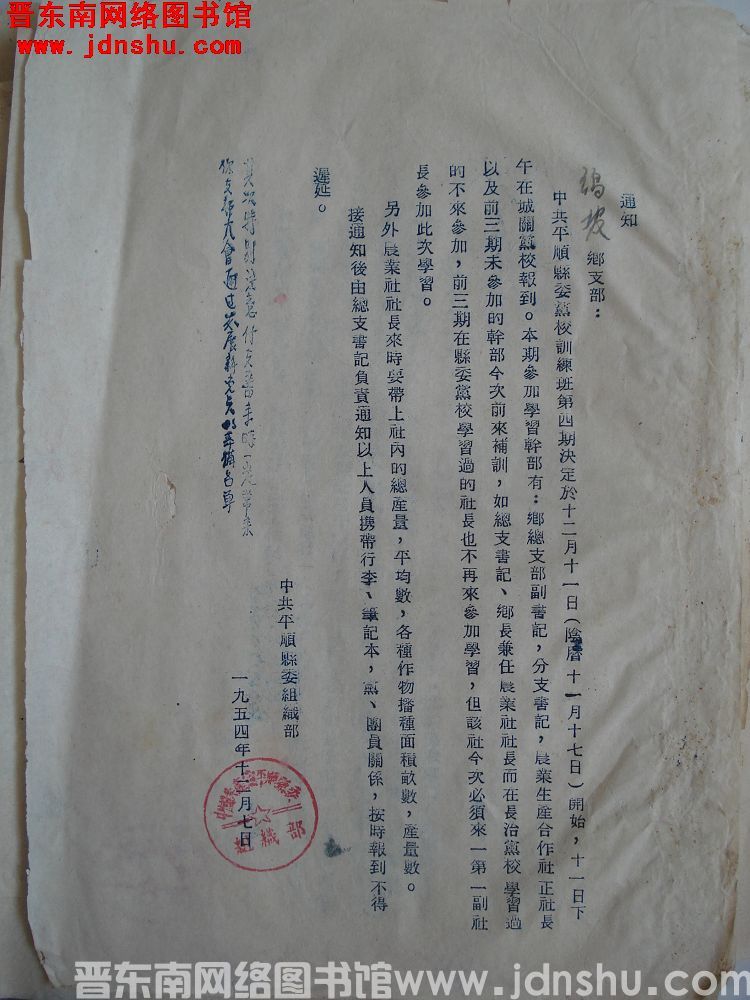 晋东南网络图书馆
www.jdnshu.com
通知
鄉支部：
中共平順縣委黨校訓練班第四期決定於十二月十一日(陰曆十一月十七日)開始，十一日下
午在城關黨校報到。本期參加學習幹部有：鄉總支部副書記，分支書記，農業生產合作社正社長
以及前三期未參加的幹部今次前來補訓，如總支書記、鄉長兼任農業社社長而在長治黨校學習過
的不來參加，前三期在縣委黨校學習過的社長也不再來參加學習，但該社今次必須來一第一副社
長參加此次學習。
另外農業社社長來時要帶上社內的總產量，平均數，各種作物播種面積畝數，產量數。
接通知後由總支書記負責通知以上人員携帶行李、筆記本，黨、團員關係，按時報到不得
遲延。
特別注意
大會通过发展新党員
中共平順縣委組織部
一九五四年十二月七日
組織部
晋东南网络图书馆www.jdnshu.com